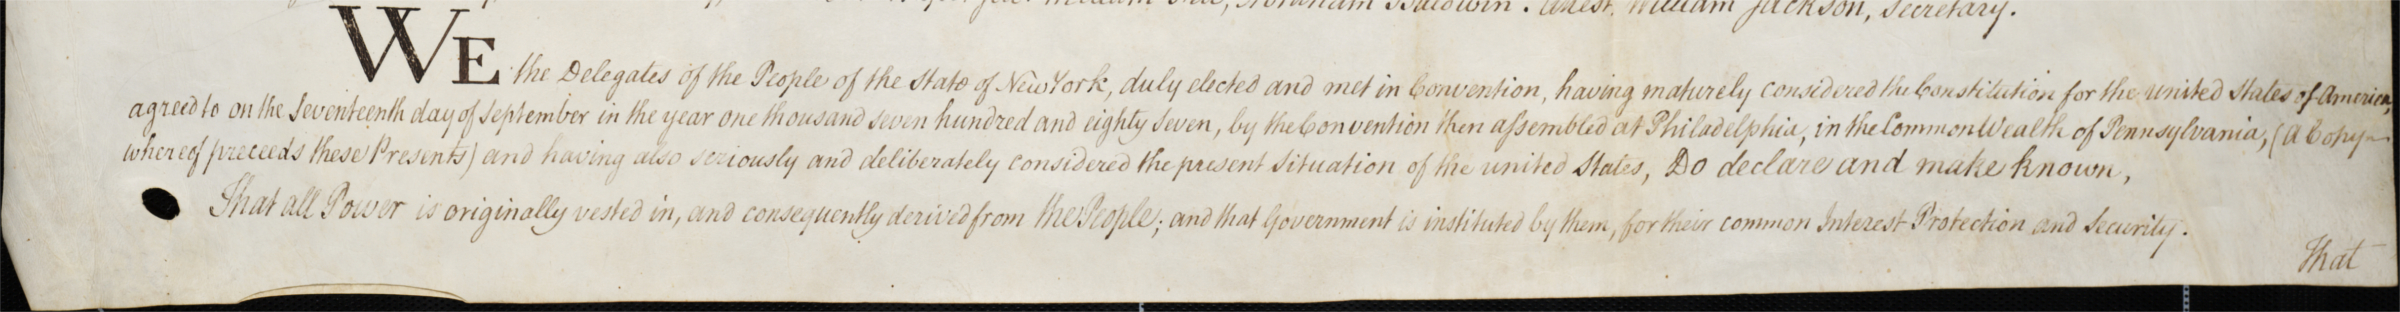 William Few, Abraham Baldwin. Attest. William Jackson, Secretary.
WE the Delegates of the People of the State of New York, duly elected and met in Convention, having maturely considered the Constitution for the united States of America,
agreed to on the Seventeenth day of September in the year one thousand seven hundred and eighty Seven, by the Convention then assembled at Philadelphia, in the CommonWealth of Pennsylvania, (a Copy
whereof preceeds these Presents) and having also seriously and deliberately considered the present Situation of the united States, Do declare and make known,
That all Power is originally vested in, and consequently derived from the People; and that Government is instituted by them, for their common Interest Protection and Security.
That